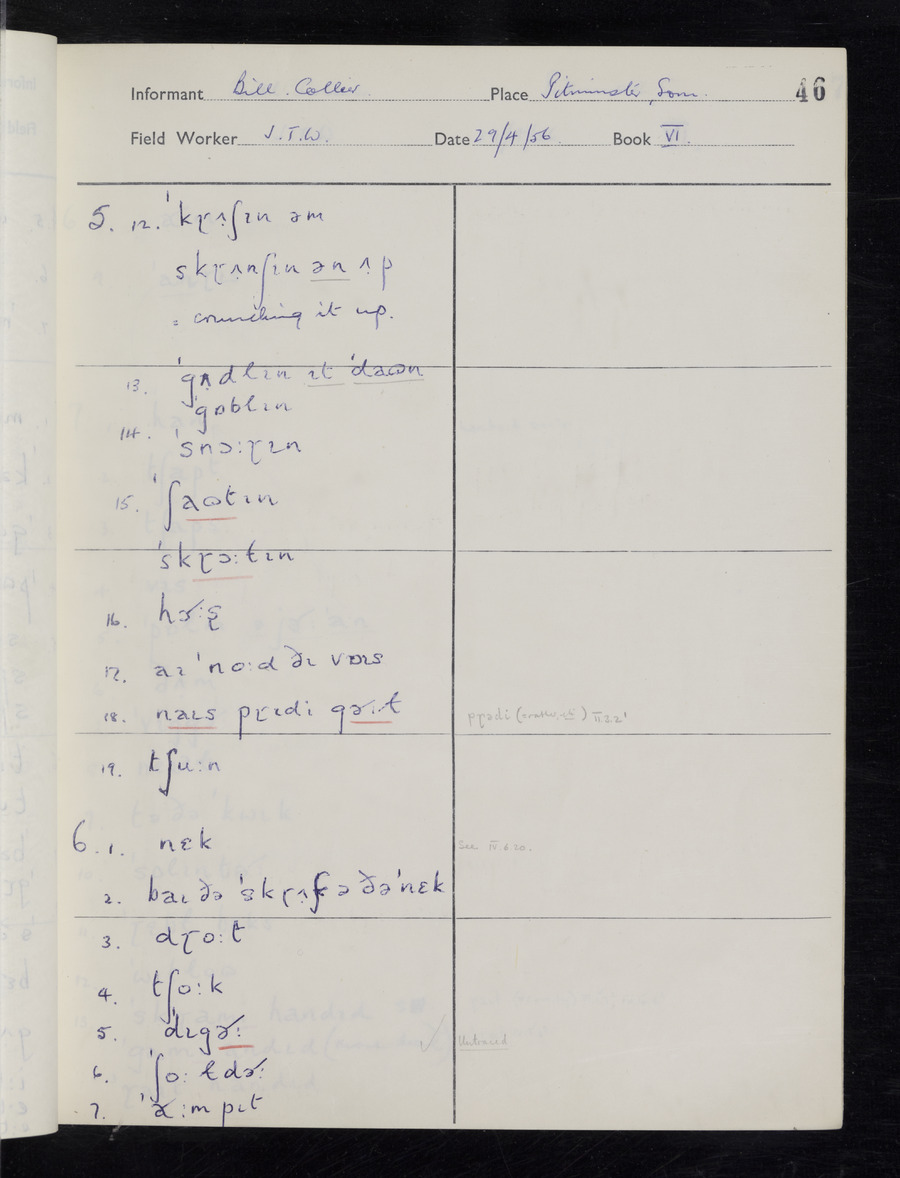 Informant Bill Collier Place Pitminster, Som. 46
Field Worker J.T.W. Date 29/4/56 Book VI.
5. 12. ˈkɽʌʃɪn əm
skɽʌnʃɪn ən ʌp
= crunching it up.
13. ˈgʌdlɪn ɪt ˈdaʊn
ˈgɒblɪn
14. ˈsnɔ:ɽɪn
15. ˈʃaʊtɪn
ˈskɽɔ:tɪn
16. hɔ:ʂ
17. aɪ ˈno:d ðɪ vɒɪs
18. naɪs pɽɪdi gəɪ:t
pɽədi II.3.2¹
19. tʃu:n
6. 1. nɛk
See IV.6.20.
2. baɪ ðə ˈskɽʌf ə ðə ˈnɛk
3. dɽo:t
4. tʃo:k
5. ˈdɪgɚ:
Untraced
6. ˈʃo:ɫdɚ:
7. ˈɑ:mpɪt